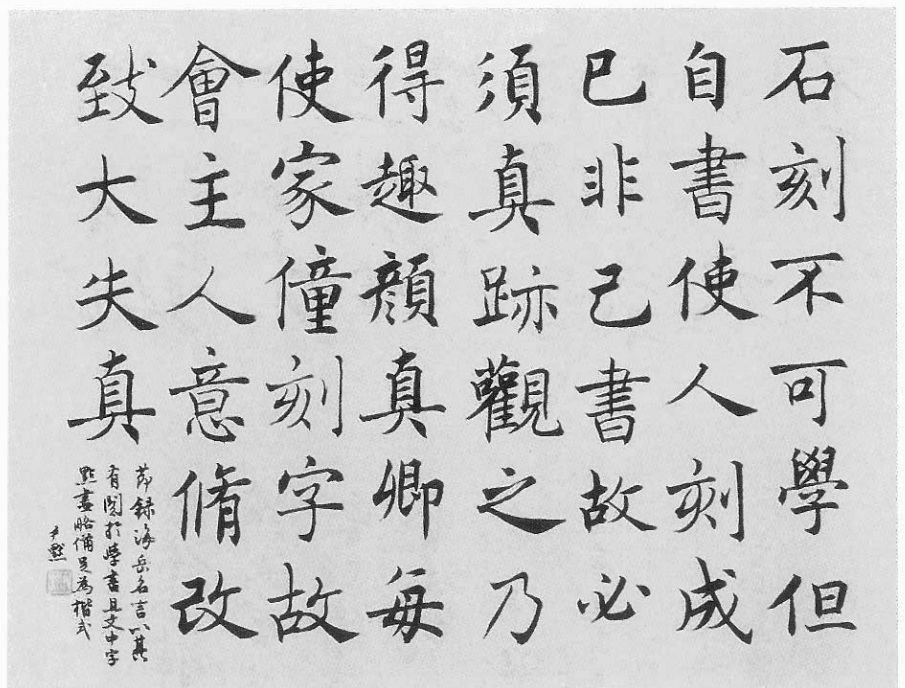 石刻不可學但
自書使人刻成
已非己書故必
須真跡觀之乃
得趣顔真卿每
使家僮刻字故
會主人意脩改
致大失真
節録海岳名言以其
有關於學書且文中字
點畫略備足爲楷式
尹默